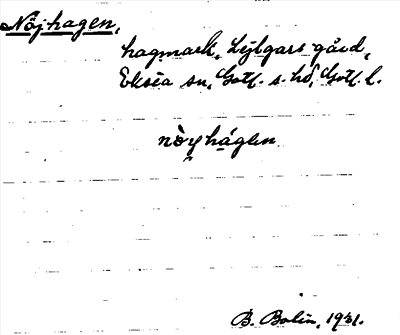 Nöjhagen,
hagmark, Lejlgars gård,
Eksta sn, Gotl. s. hd, Gotl. l.
nòyhágen
B. Bolin, 1931.